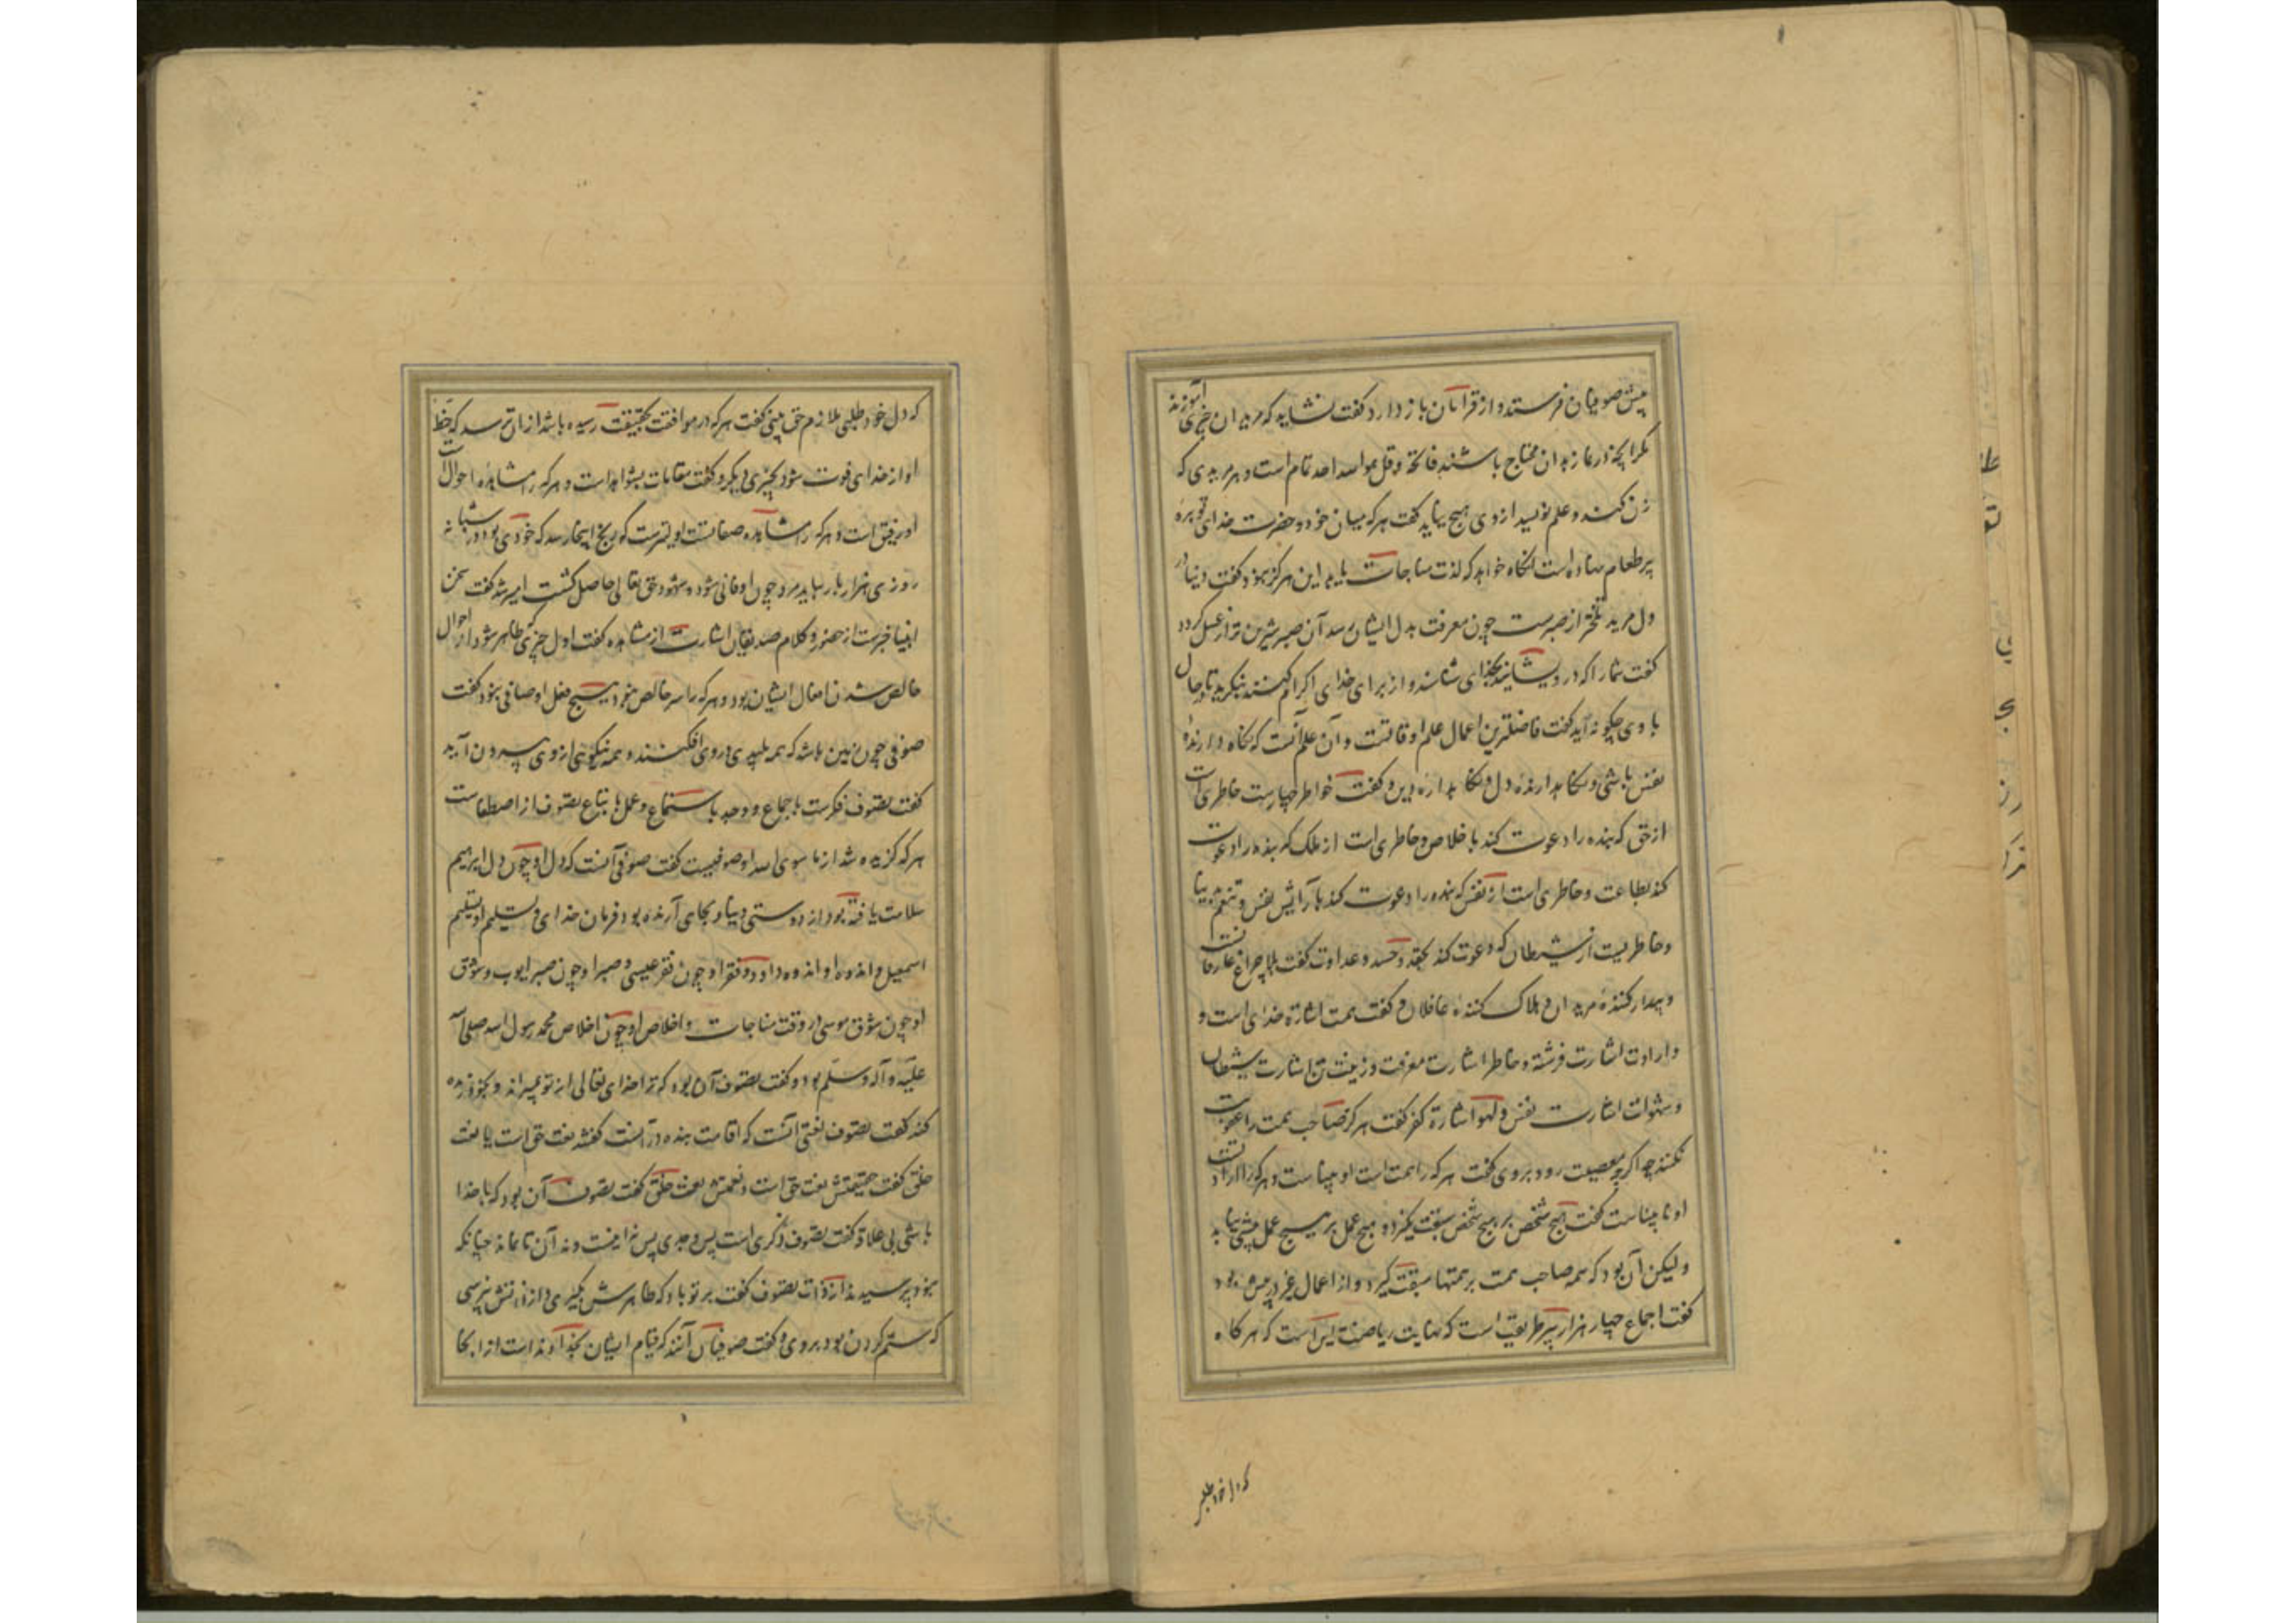 پیش صوفیان فرستد و از قرایان باز دارد گفت نشاید که مریدان چیزی آموزند
مگر آنچه در نماز بدان محتاج باشند فاتحه و قل هو الله احد تمام است و هر مریدی که
زن کند و علم نویسد از وی هیچ نیاید گفت هرکه میان خود و حضرت خدای توبره
پر طعام نهاده است آنگاه خواهد که لذت مناجات یابد این هرگز نبود گفت دنیا در
دل مرید تلختر از صبرست چون معرفت بدل ایشان رسد آن صبر شیرین تر از عسل گردد
گفت شما را که درویشانید بخدای شناسند و از برای خدای اکرام کنند بنگرید تا در خلا
با وی چگونه اید گفت فاضلترین اعمال علم اوقاتست و آن علم آنست که نگاه دارنده
نفس باشی و نگاه دارنده دل و نگاه دارنده دین و گفت خواطر چهارست خاطری است
از حق که بنده را دعوت کند باخلاص و خاطری است از ملک که بنده را دعوت
کند بطاعت و خاطری است از نفس که بنده را دعوت کند بآرایش نفس و تنعم بدنیا
و خاطریست از شیطان که دعوت کند بحقد و حسد و عداوت گفت بلا چراغ عارفانست
و بیدار کننده مریدان و هلاک کننده غافلان و گفت همت اشارة خدای است و
و ارادت اشارت فرشته و خاطر اشارت معرفت و زینت تن اشارت شیطان
و شهوات اشارت نفس و لهو اشارة کفر گفت هرگز صاحب همت را عقوبت
نکنند اگرچه معصیت رود بروی گفت هرکه را همت است او بیناست و هرکه را ارادتست
او نابیناست گفت هیچ شخص بر هیچ شخص سبقت نگیرد و هیچ عمل بر هیچ عمل پیشی نیابد
ولیکن آن بود که همه صاحب همت بر همتها سبقت گیرد و از اعمال غیر در پیش بود
گفت اجماع چهار هزار پیر طریقت است که نهایت ریاضت این است که هرگاه
که دل خود طلبی
که دل خود طلبی ملازم حق بینی گفت هرکه در موافقت بحقیقت رسیده باشد از آن ترسد که حظ
او از خدای فوت شود بچیزی دیگر و گفت مقامات بشواهد است و هرکه را مشاهده احوال است
او رفیق است و هرکه را مشاهده صفاتست او اسیرست که رنج اینجا رسد که خودی بود در شبانه
روزی هزار بار بباید مرد چون او فانی شود و شهود حق تعالی حاصل گشت امیر شد گفت سخن
انبیا خبرست از حضور و کلام صدیقان اشارت از مشاهده گفت اول چیزی که ظاهر شود از احوال
خالص شدن افعال ایشان بود و هرکه را سر خالص نبود هیچ فعل او صافی نبود گفت
صوفی چون زمین باشد که همه پلیدی در وی افکنند و همه نیکویی از وی بیرون آید
گفت تصوف ذکرست باجماع و وجد باستماع و عمل باتباع تصوف از اصطفاست
هرکه گزیده شد از ما سوی الله او صوفیست گفت صوفی آنست که دل او چون دل ابرهیم
سلامت یافته بود از دوستی دنیا و بجای آرنده بود فرمان خدای و تسلیم او تسلیم
اسمعیل و اندوه او اندوه داود و فقر او چون فقر عیسی و صبر او چون صبر ایوب و شوق
او چون شوق موسی در وقت مناجات و اخلاص او چون اخلاص محمد رسول الله صلی الله
علیه و آله و سلم بود و گفت تصوف آن بود که ترا خدای تعالی از تو بمیراند و بخود زنده
کند گفت تصوف نعتی است که اقامت بنده در آنست گفتند نعت حق است یا نعت
خلق گفت حقیقتش نعت حق است و نعتش نعت خلق گفت تصوف آن بود که با خدا
باشی بی علاقه گفت تصوف ذکری است پس وجدی پس نه اینست و نه آن تا نماند چنانکه
نبود پرسیدند از ذات تصوف گفت بر تو باد که ظاهرش بگیری و از ذاتش نپرسی
که ستم کردن بود بروی و گفت صوفیان آنند که قیام ایشان بخداوند است از آنجا